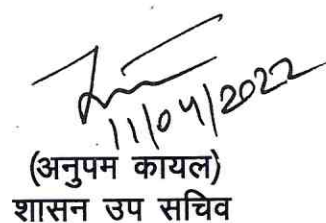 11/04/2022
(अनुपम कायल)
शासन उप सचिव